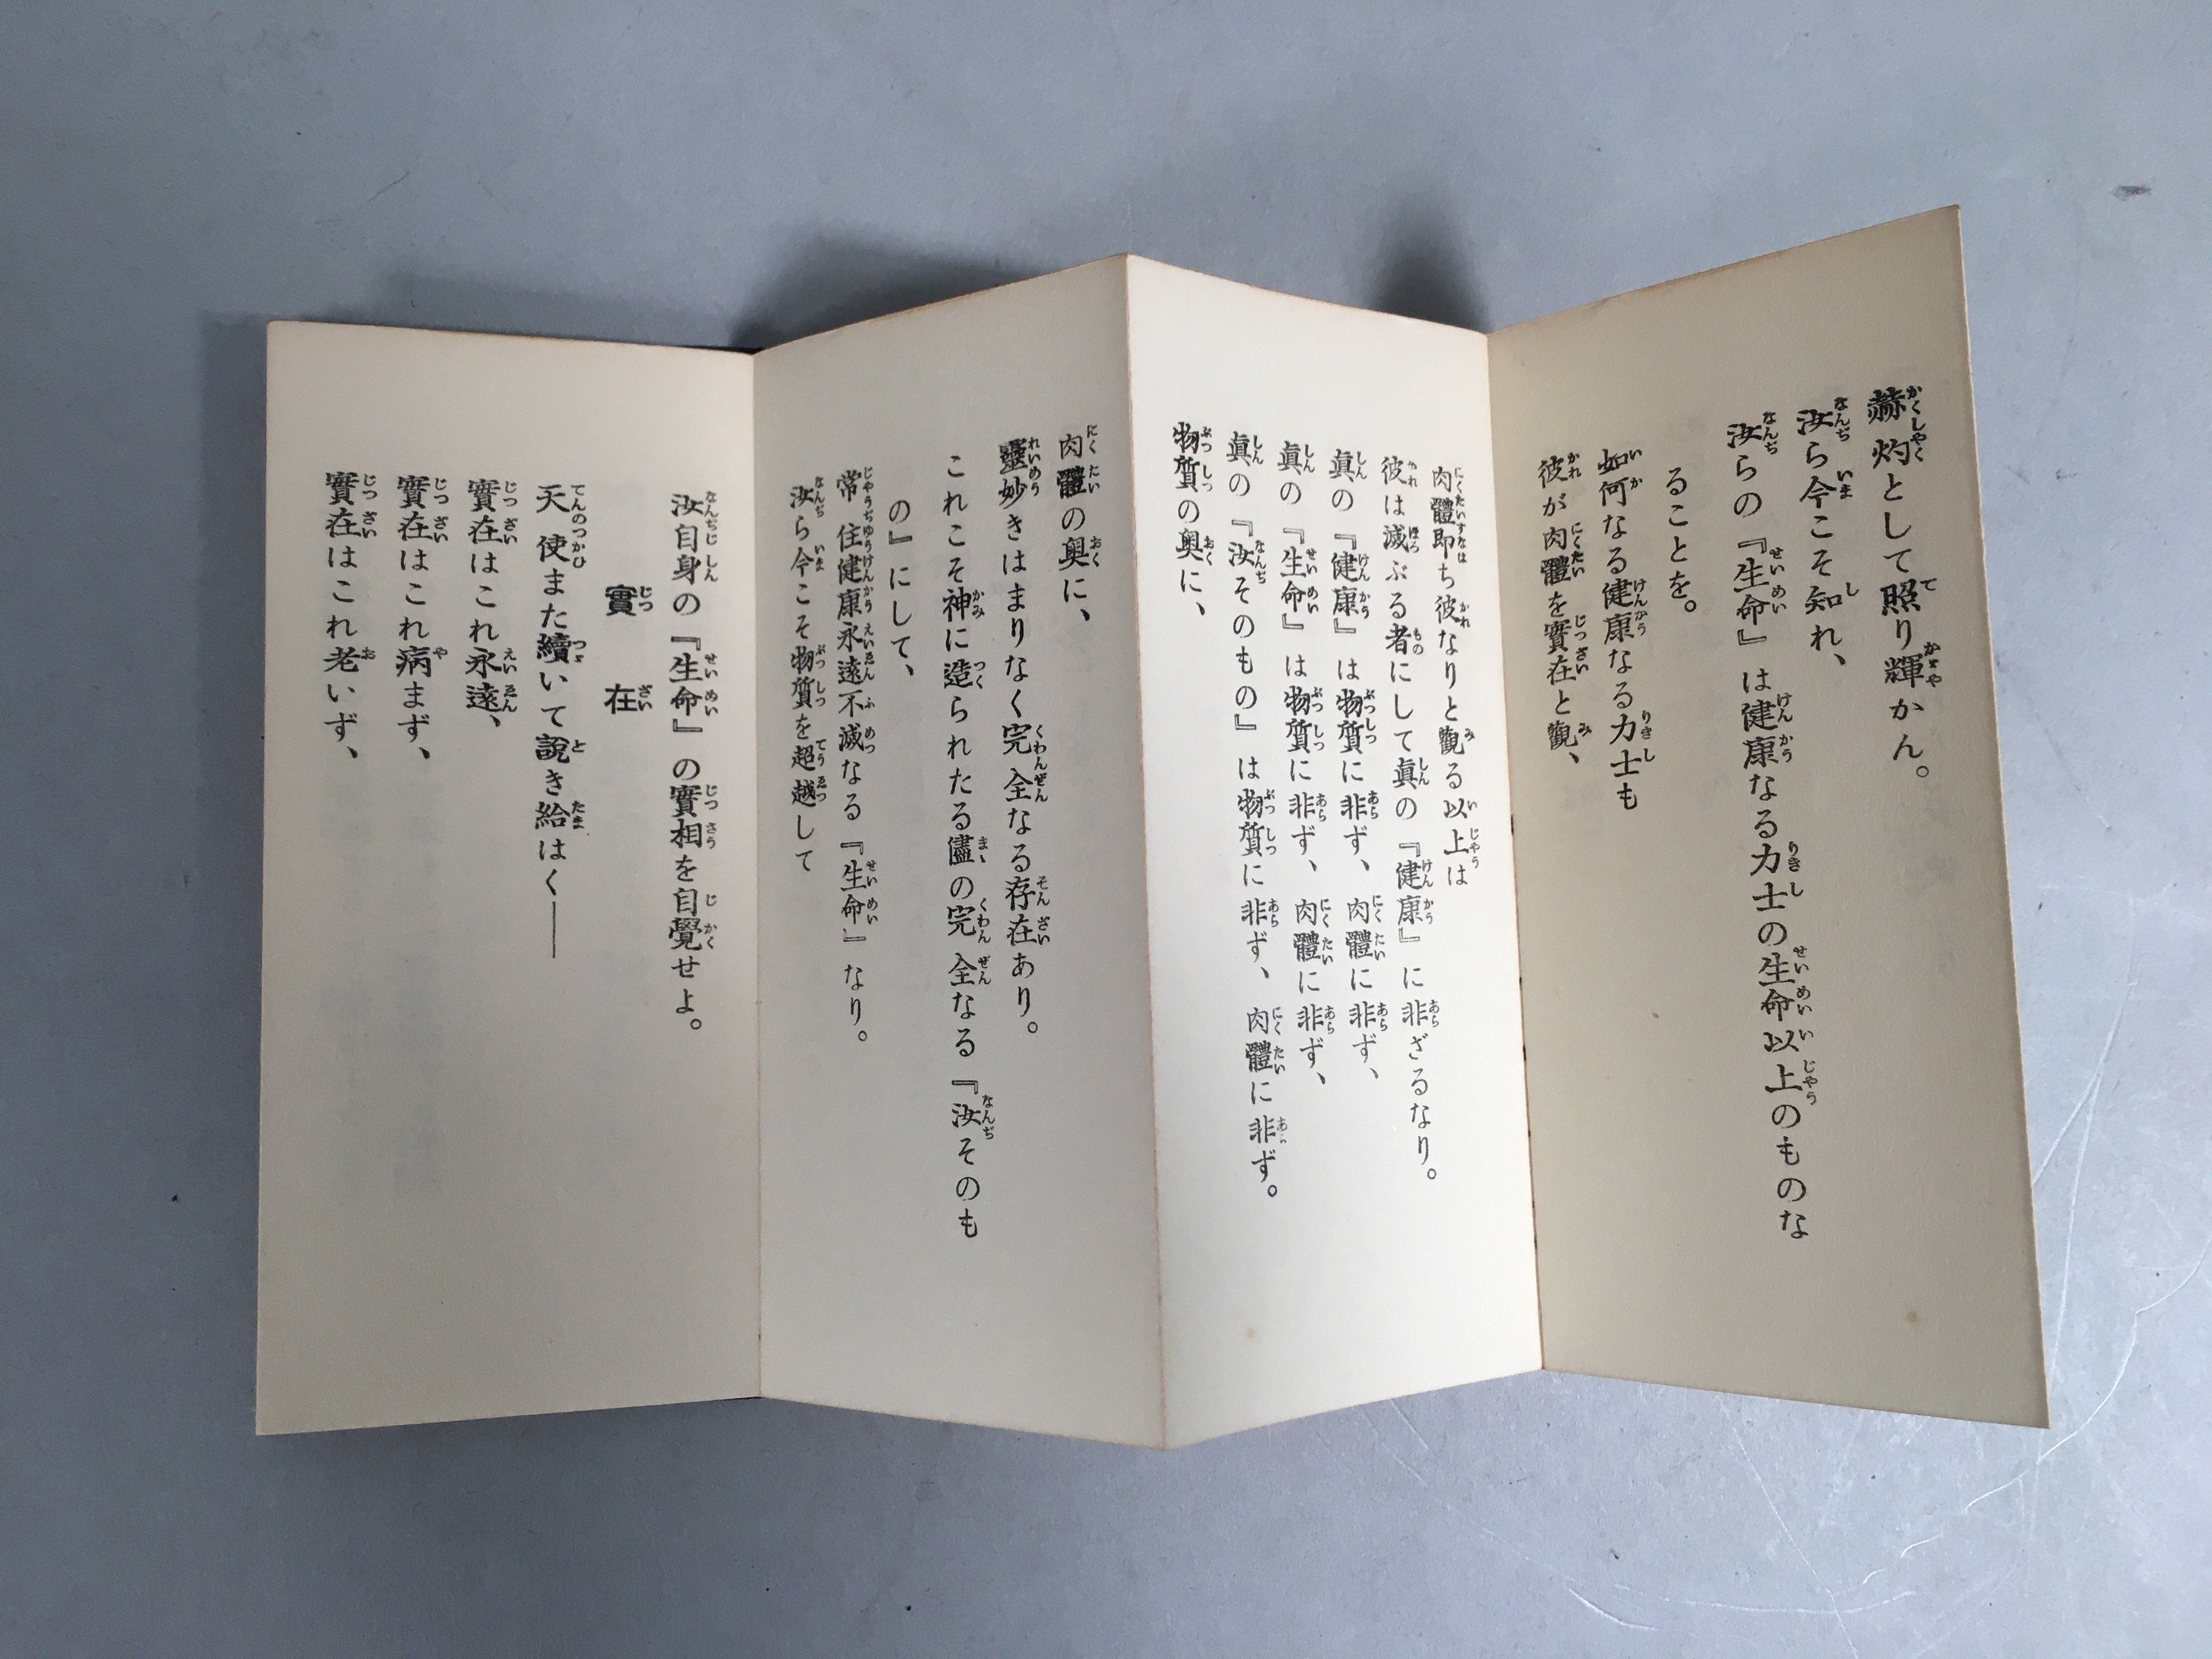 赫灼として照り輝かん。
汝ら今こそ知れ、
汝らの『生命』は健康なる力士の生命以上のものな
ることを。
如何なる健康なる力士も
彼が肉體を實在と觀、
肉體即ち彼なりと觀る以上は
彼は滅ぶる者にして眞の『健康』に非ざるなり。
眞の『健康』は物質に非ず、肉體に非ず、
眞の『生命』は物質に非ず、肉體に非ず、
眞の『汝そのもの』は物質に非ず、肉體に非ず。
物質の奥に、
肉體の奥に、
靈妙きはまりなく完全なる存在あり。
これこそ神に造られたる儘の完全なる『汝そのも
の』にして、
常住健康永遠不滅なる『生命』なり。
汝ら今こそ物質を超越して
汝自身の『生命』の實相を自覺せよ。
實在
天使また續いて說き給はく――
實在はこれ永遠、
實在はこれ病まず、
實在はこれ老いず、